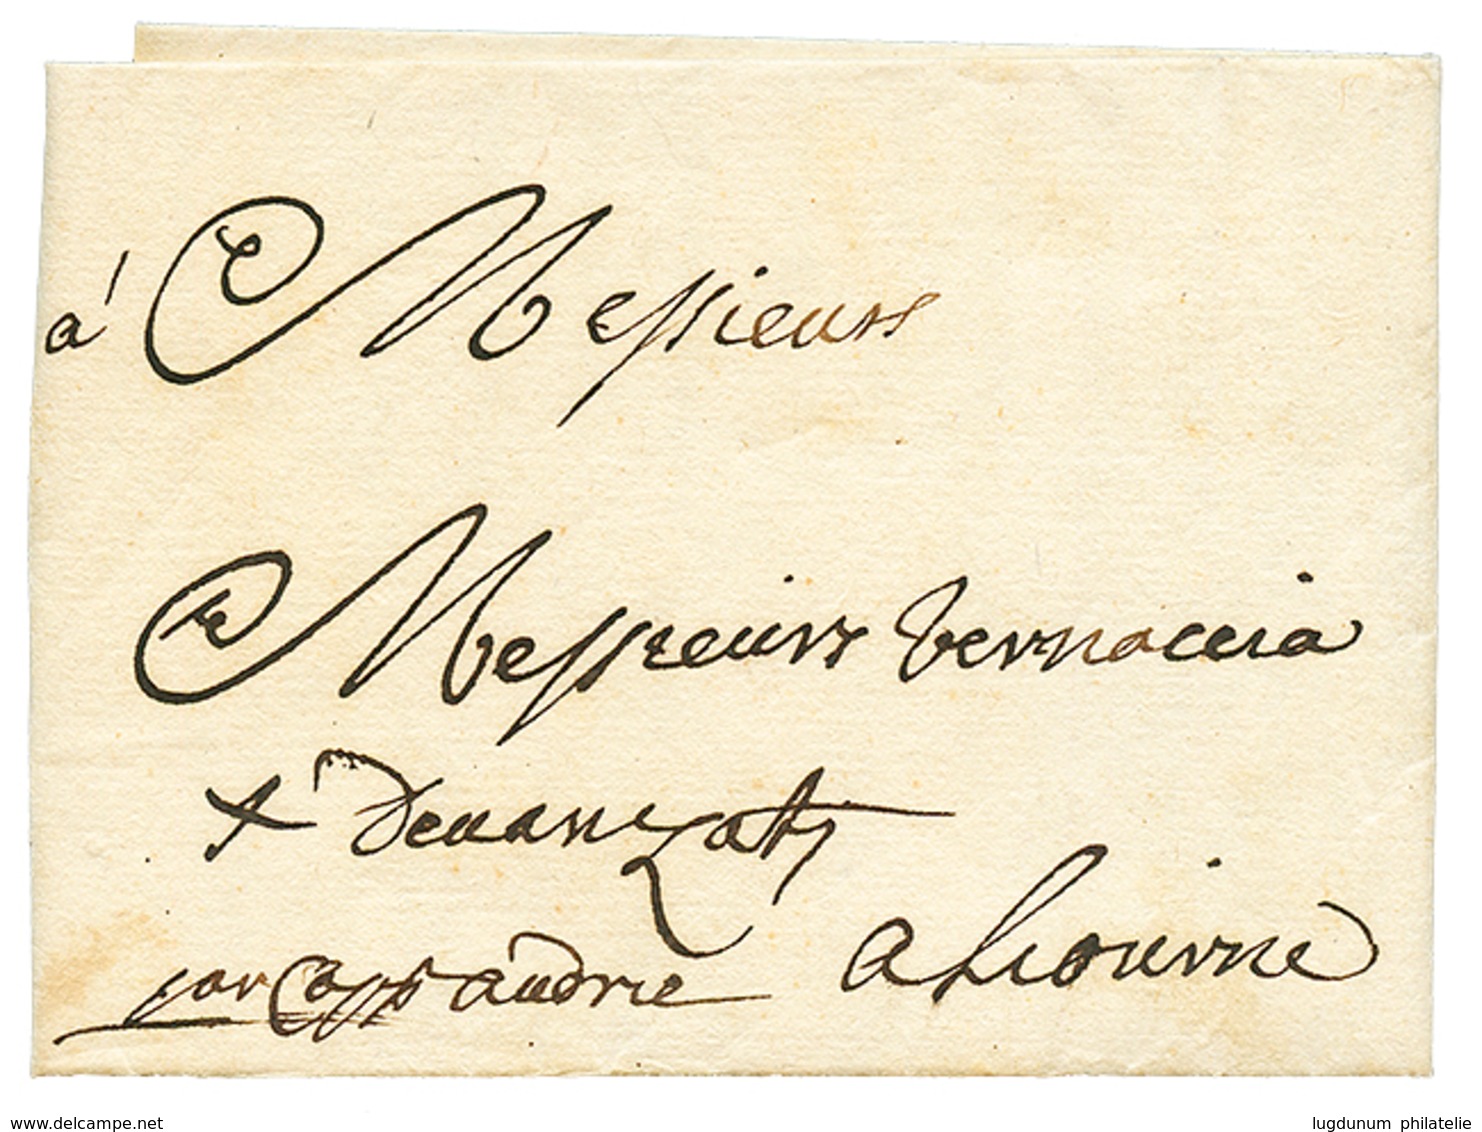 á Messieurs
Messieurs Vernaccia
& Devanzaty
a Liourne
par Capp. andrie
delcampe.net
lugdunum philatelie